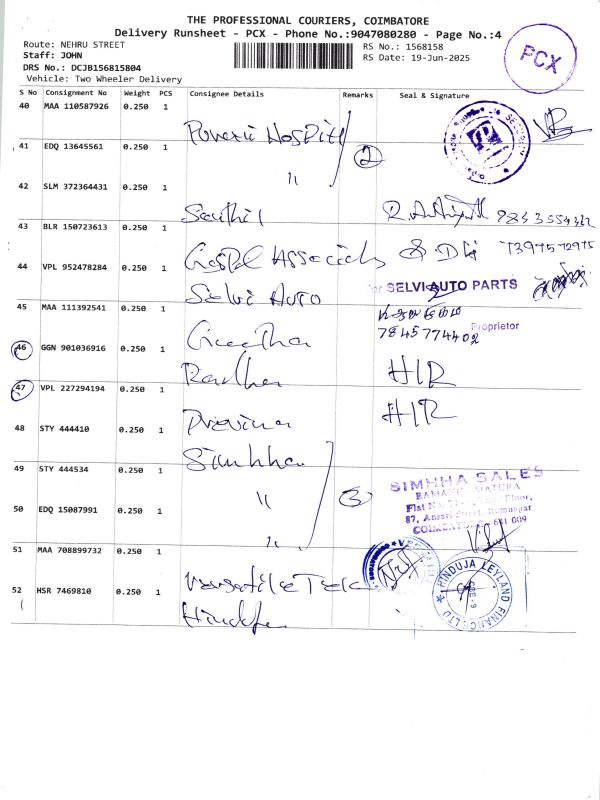 THE PROFESSIONAL COURIERS, COIMBATORE
Delivery Runsheet - PCX - Phone No.:9047080280 - Page No.:4
Route: NEHRU STREET
Staff: JOHN
DRS No.: DCJB156815804
Vehicle: Two Wheeler Delivery
RS No.: 1568158
RS Date: 19-Jun-2025
PCX
S No Consignment No Weight PCS Consignee Details Remarks Seal & Signature
40 MAA 110587926 0.250 1
Hospital
41 EDQ 13645561 0.250 1
" 2
42 SLM 372364431 0.250 1
Senthil
43 BLR 150723613 0.250 1
Gospel Associates 7397572975
44 VPL 952478284 0.250 1
Selvi Auto
SELVI AUTO PARTS
45 MAA 111392541 0.250 1
Geetha
7845774402
Proprietor
46 GGN 901036916 0.250 1
Radha H/R
47 VPL 227294194 0.250 1
Pravina H/R
48 STY 444410 0.250 1
Simhha
49 STY 444534 0.250 1
" 3
SIMHHA SALES
50 EDQ 15087991 0.250 1
"
51 MAA 708899732 0.250 1
Versatile Tek
52 HSR 7469810 0.250 1
HINDUJA LEYLAND FINANCE LTD